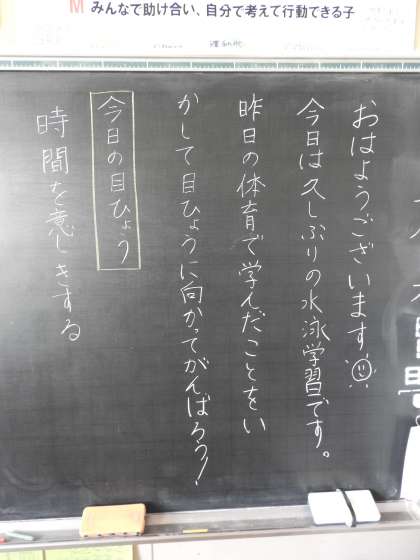 M みんなで助け合い、自分で考えて行動できる子
おはようございます
今日は久しぶりの水泳学習です。
昨日の体育で学んだことをい
かして目ひょうに向かってがんばろう!
今日の目ひょう
時間を意しきする